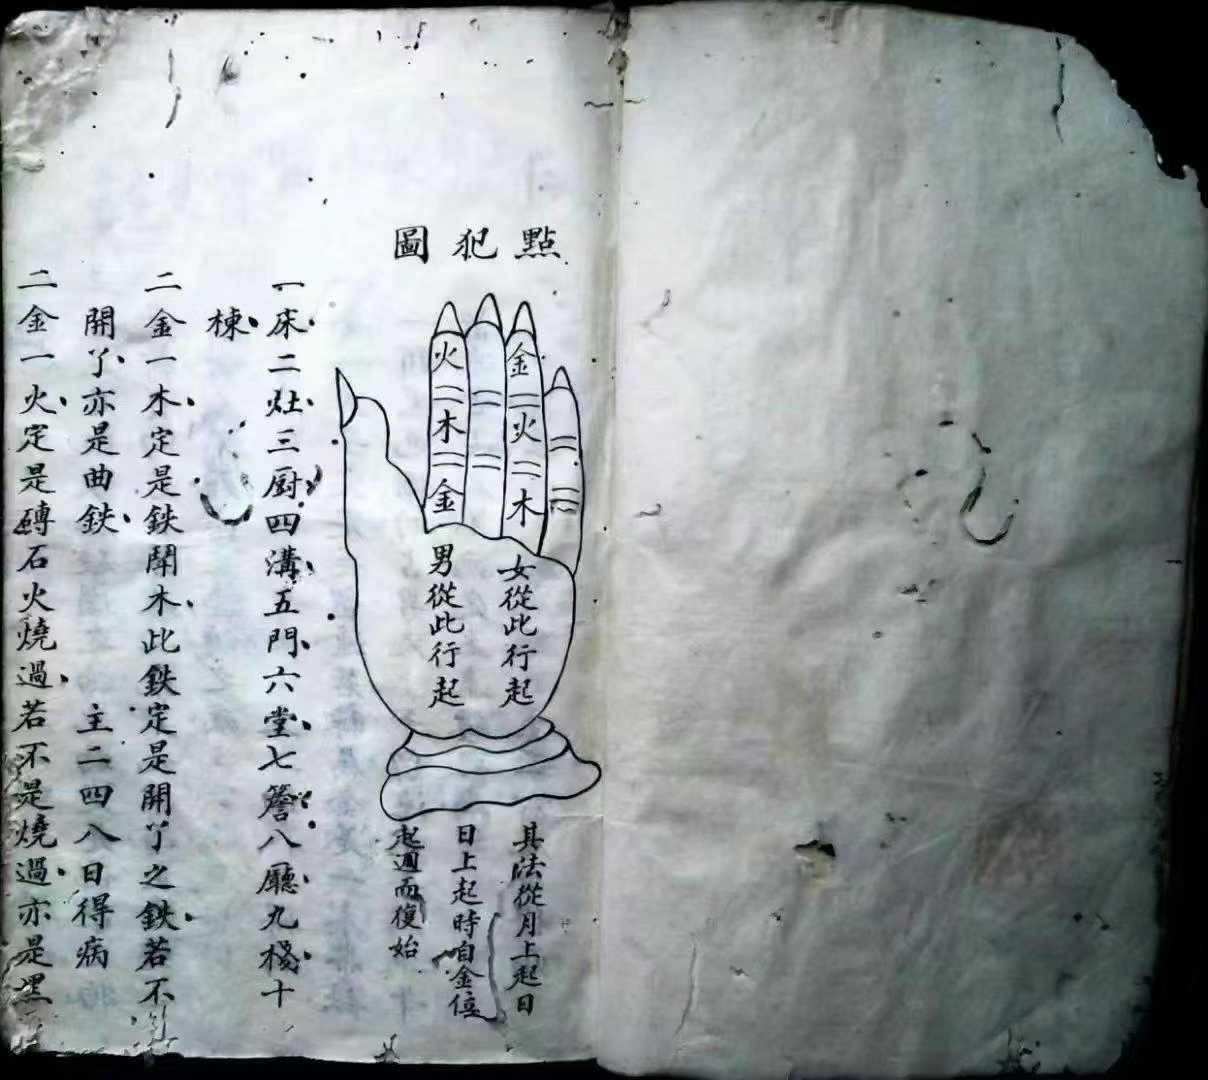 點犯圖
金火木
火木金
女從此行起
男從此行起
其法從月上起日
日上起時自金位
起週而復始
一床二灶三厨四溝五門六堂七簷八廳九棧十
棟
二金一木定是鉄閗木此鉄定是開丫之鉄若不
開丫亦是曲鉄　主二四八日得病
二金一火定是磚石火燒過若不是燒過亦是黑